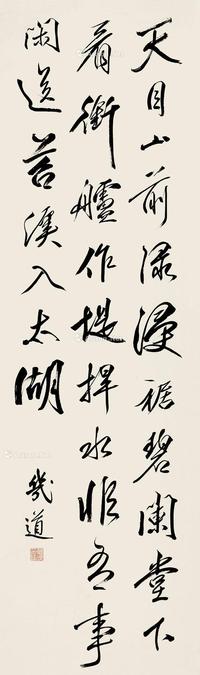 天目山前渌浸裾碧阑堂下
看衔舻作堤捍水非吾事
闲送苕溪入太湖
几道